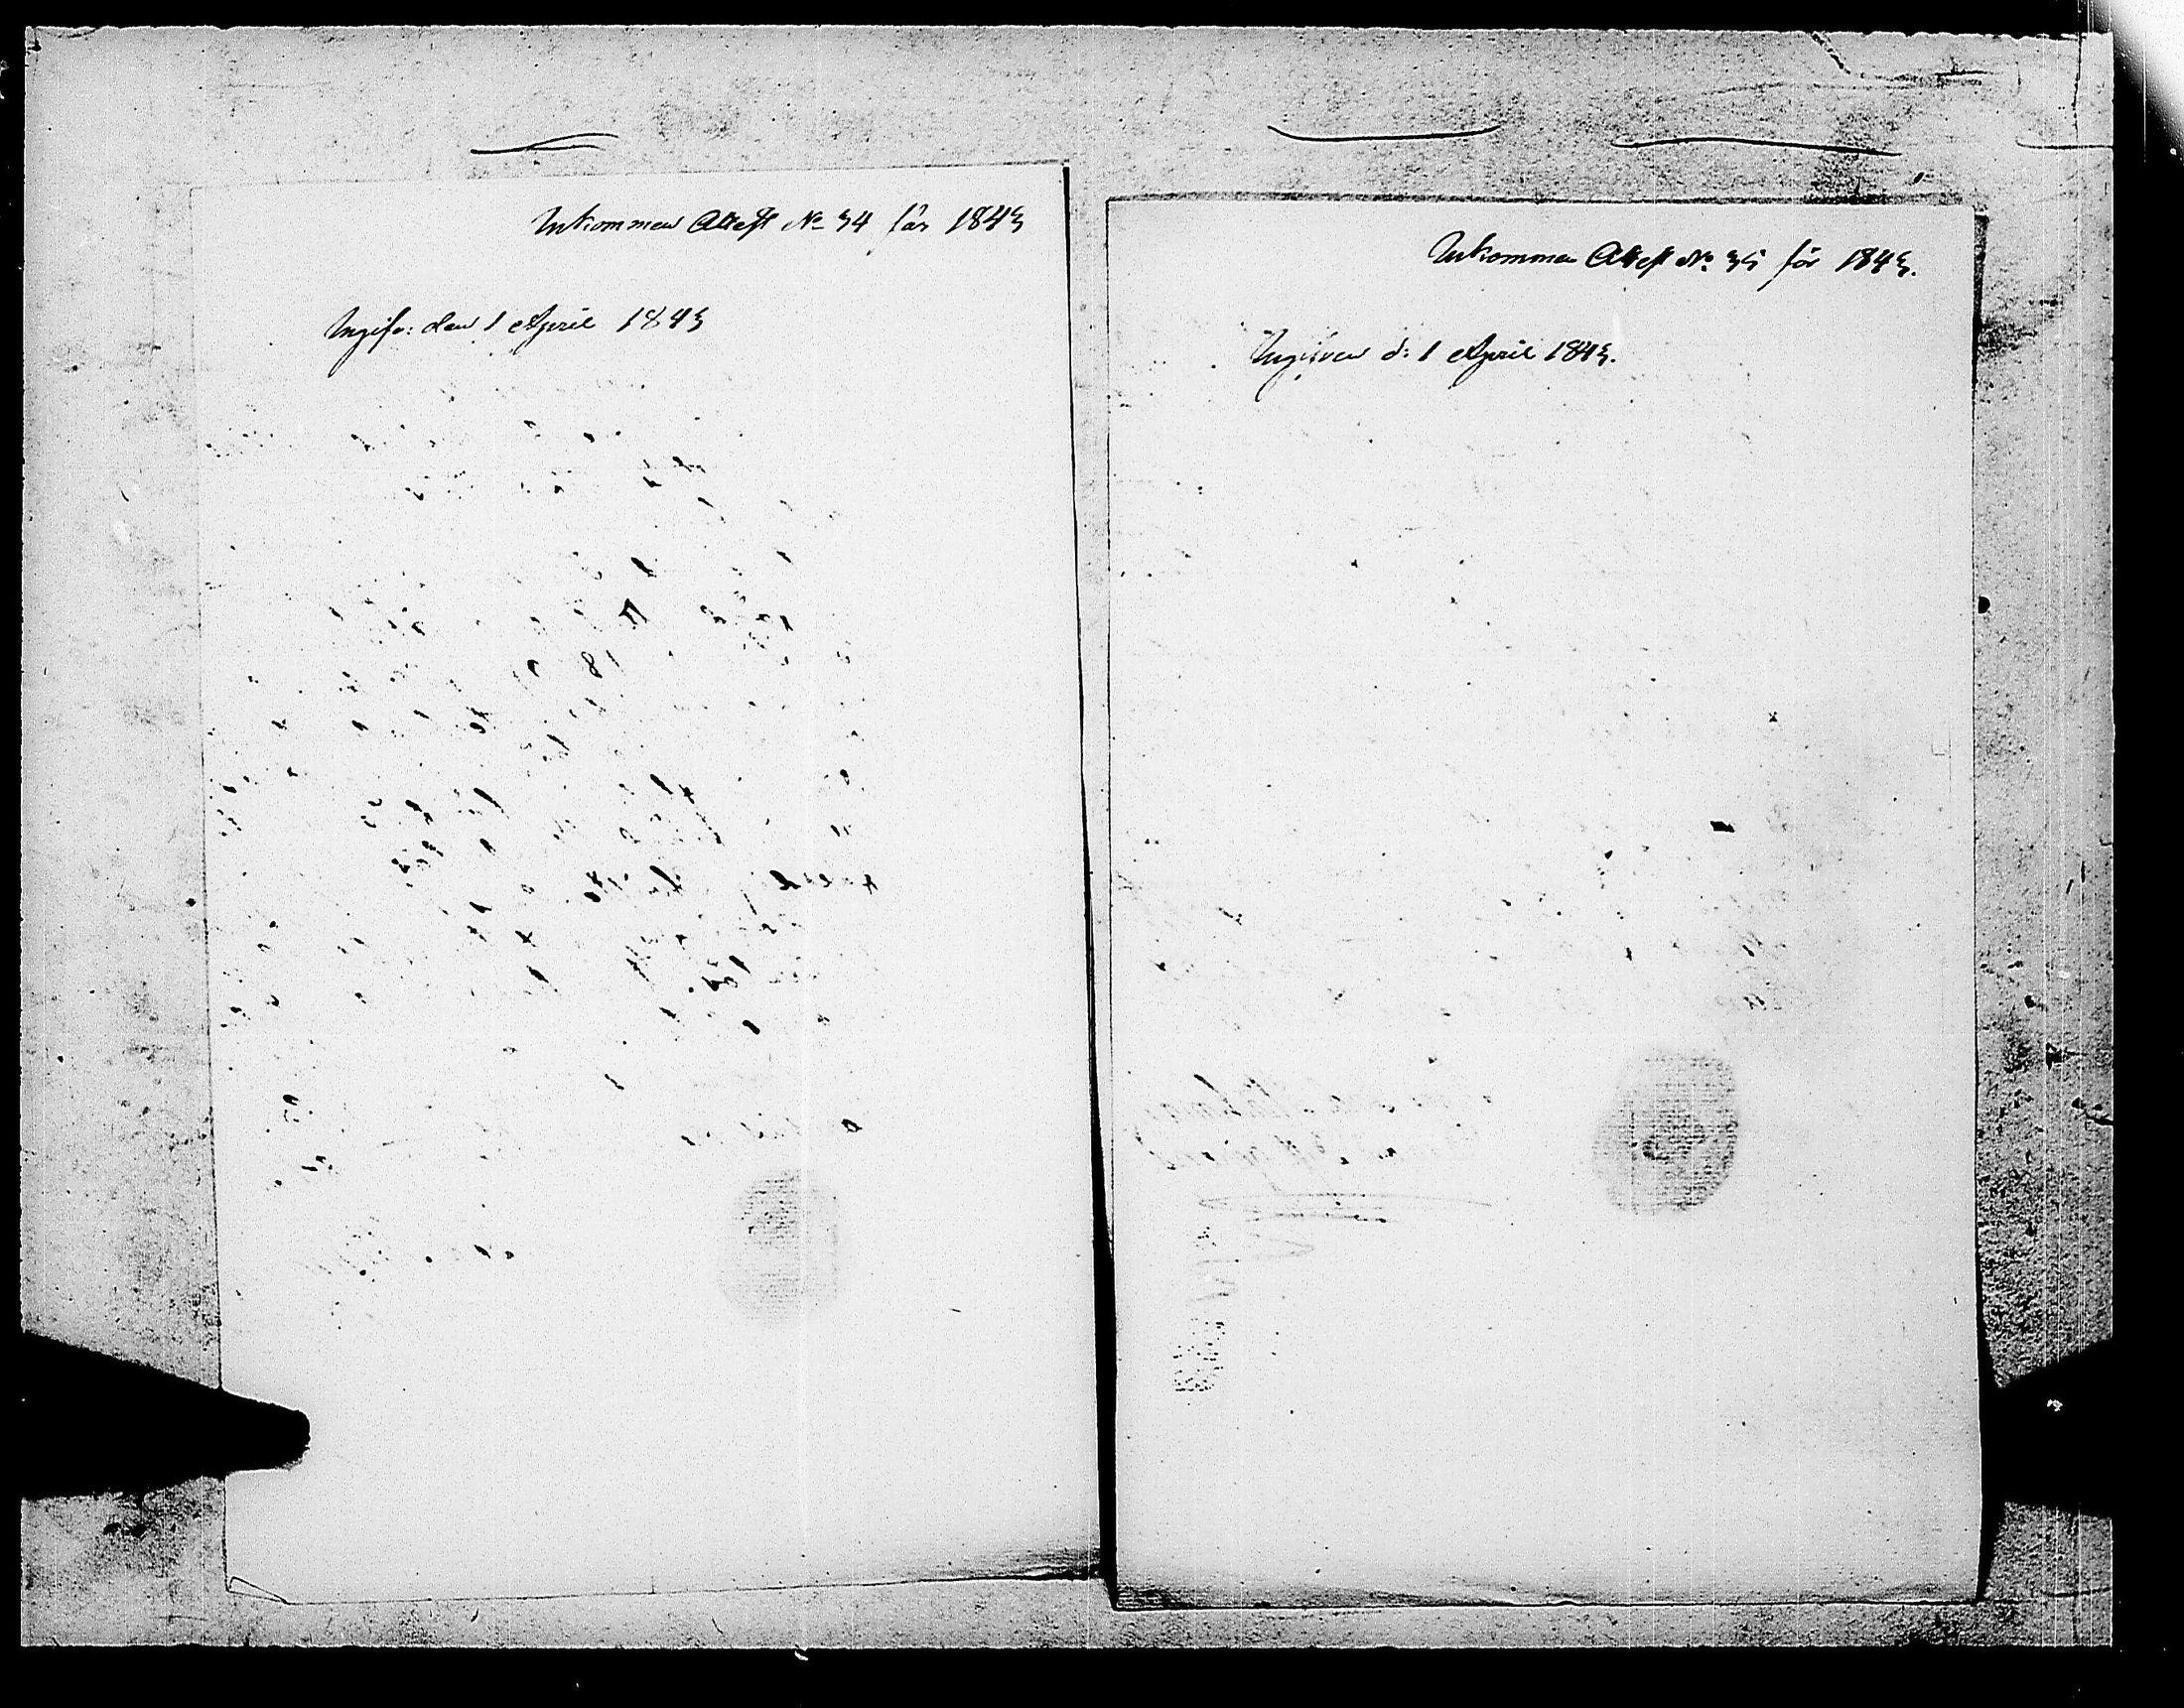 Inkommen Attest No 34 för 1843
Ingifv: den 1 April 1843
Inkommen Attest No 35 för 1843.
Ingifven d: 1 April 1843.